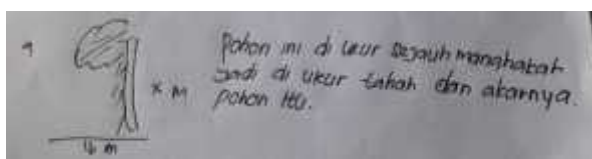 9
Pohon ini di ukur sejauh manahakah
Jadi di ukur tanah dan akarnya.
pohon itu.
x m
4 m